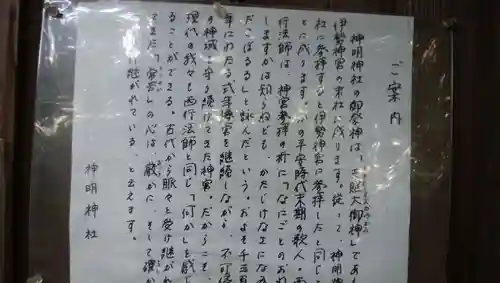 ご案内
神明神社の御祭神は、天照大御神であ
伊勢神宮の末社に成ります。従って、神明神
社に参拝すると伊勢神宮に参拝したと同じこ
とに成ります。かの平安時代末期の歌人・西
行法師は、神宮参拝の折に「なにごとのおわ
しますかは知らねども かたじけなさになみ
だこぼるる」と詠んだという。およそ千三百
年にわたる式年遷宮を継続しながら、不可侵
の神域を守り続けてきた神宮。だからこそ、
現代の我々も西行法師と同じ「何か」を感じ
ることができる。古代から脈々と受け継がれ
てきた の心は、厳かに、そして確か
継がれている、と云えます。
神明神社